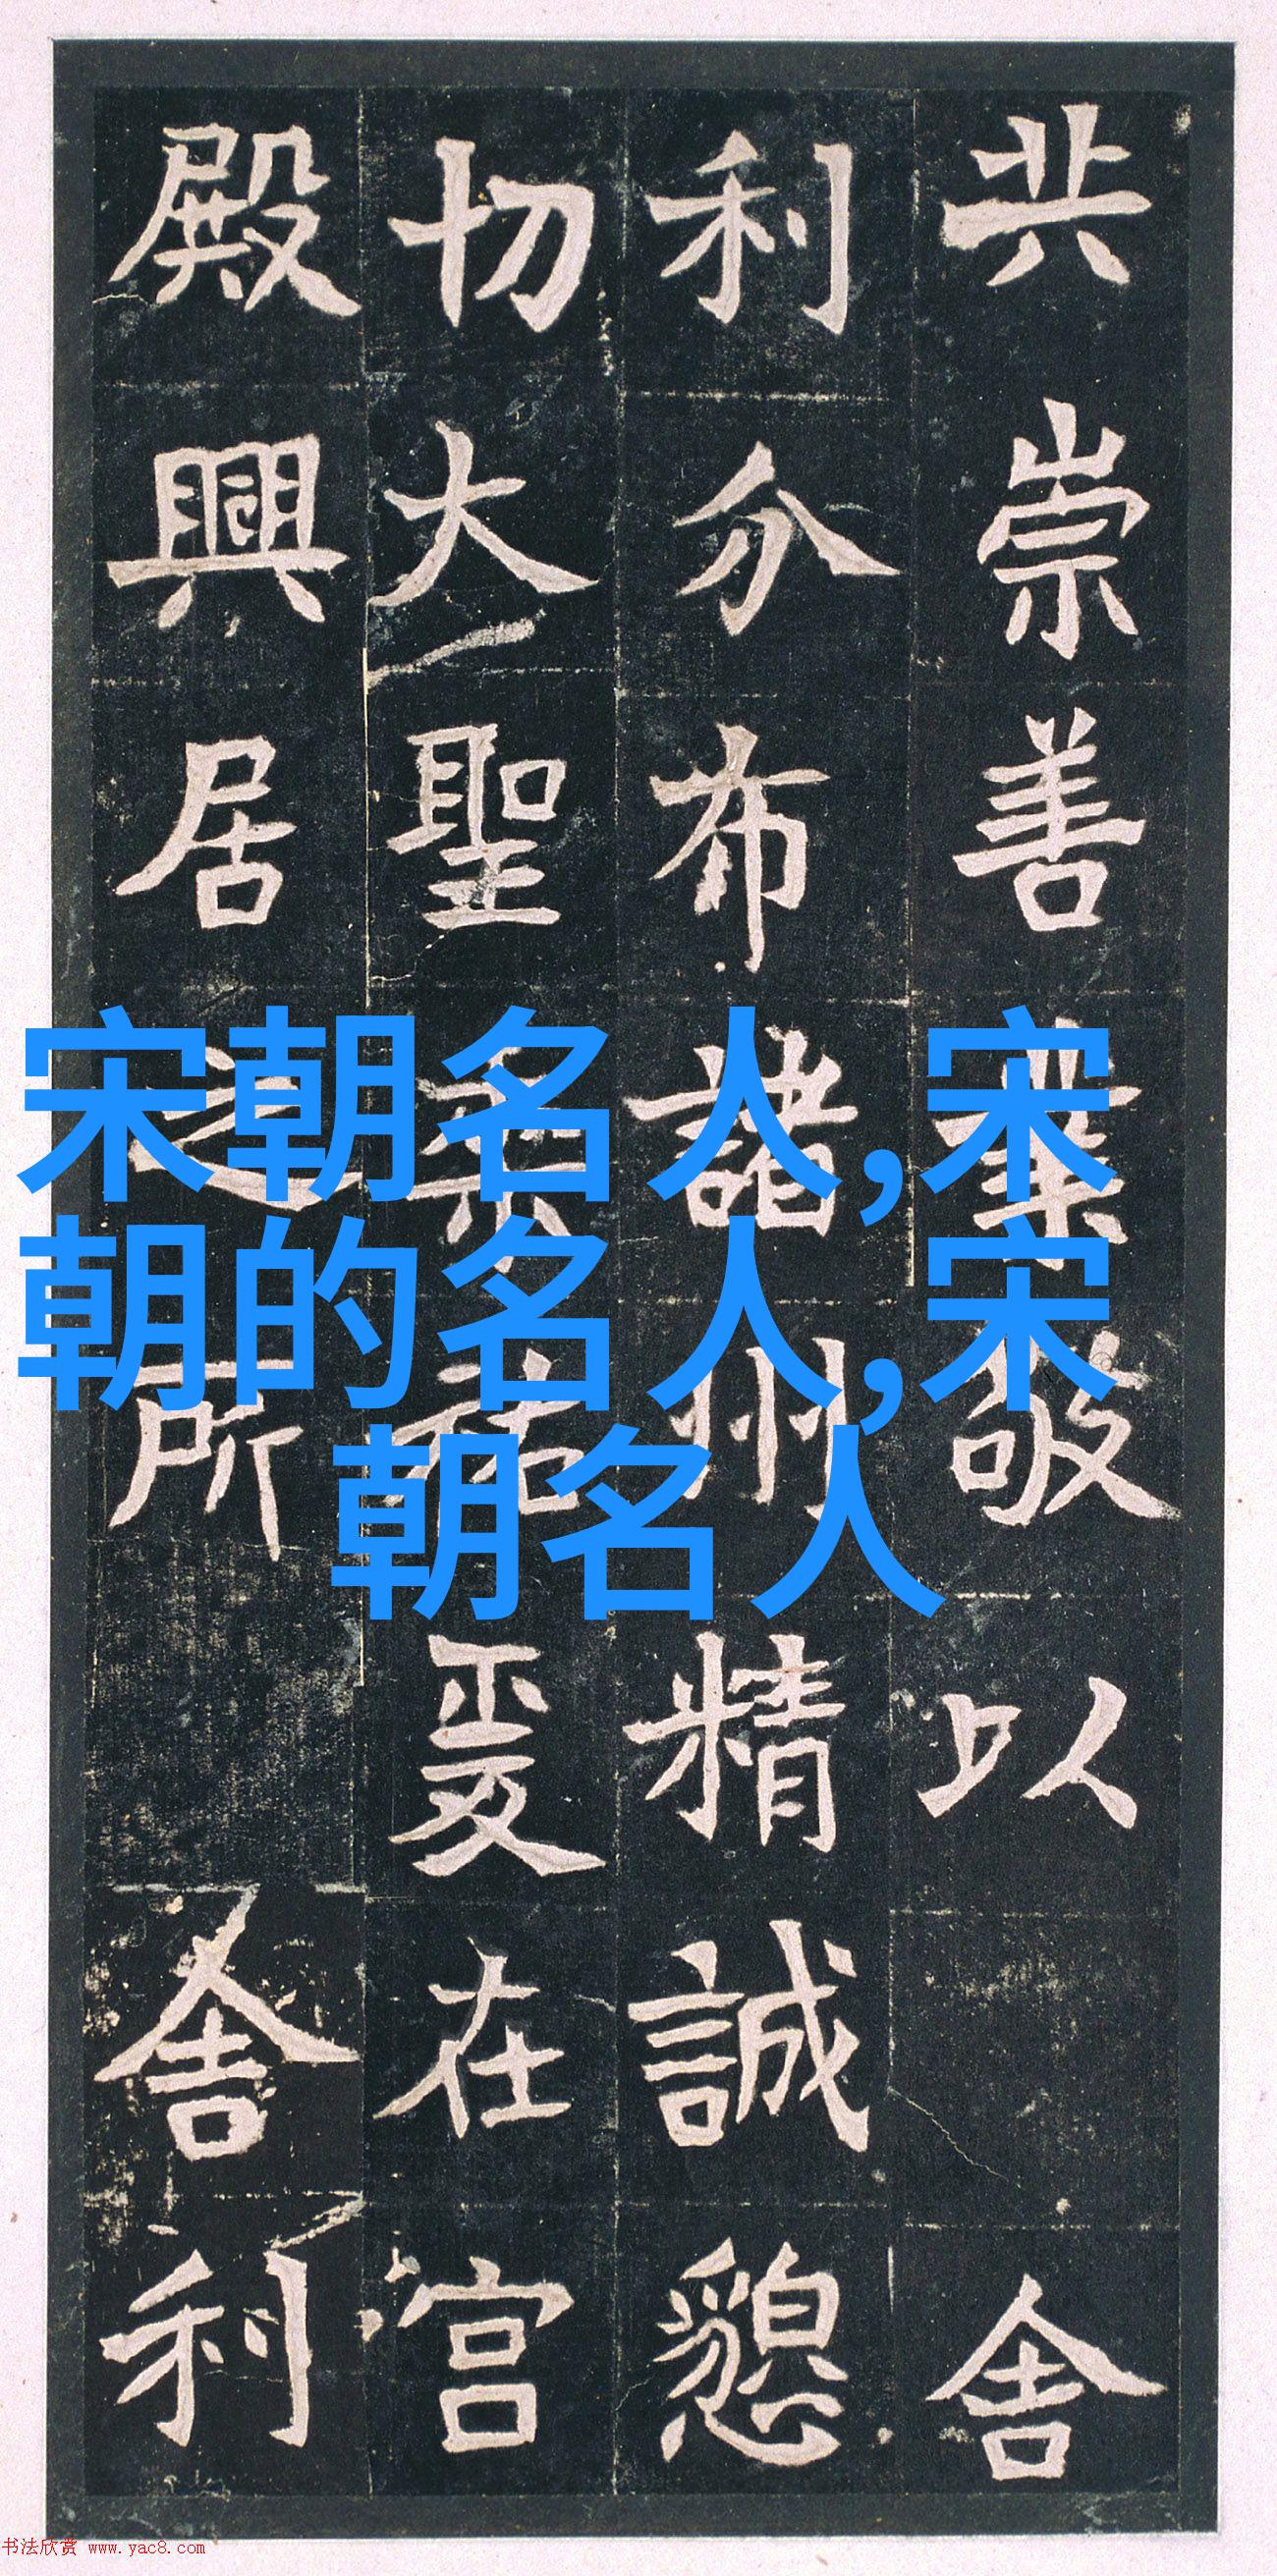 共崇善業敬以 舍
利分布諸州精誠懇
切大聖祐爰在宮
殿興居之所 舍利
宋朝名人,宋
朝的名人,宋
朝名人
书法欣赏 www.yac8.com